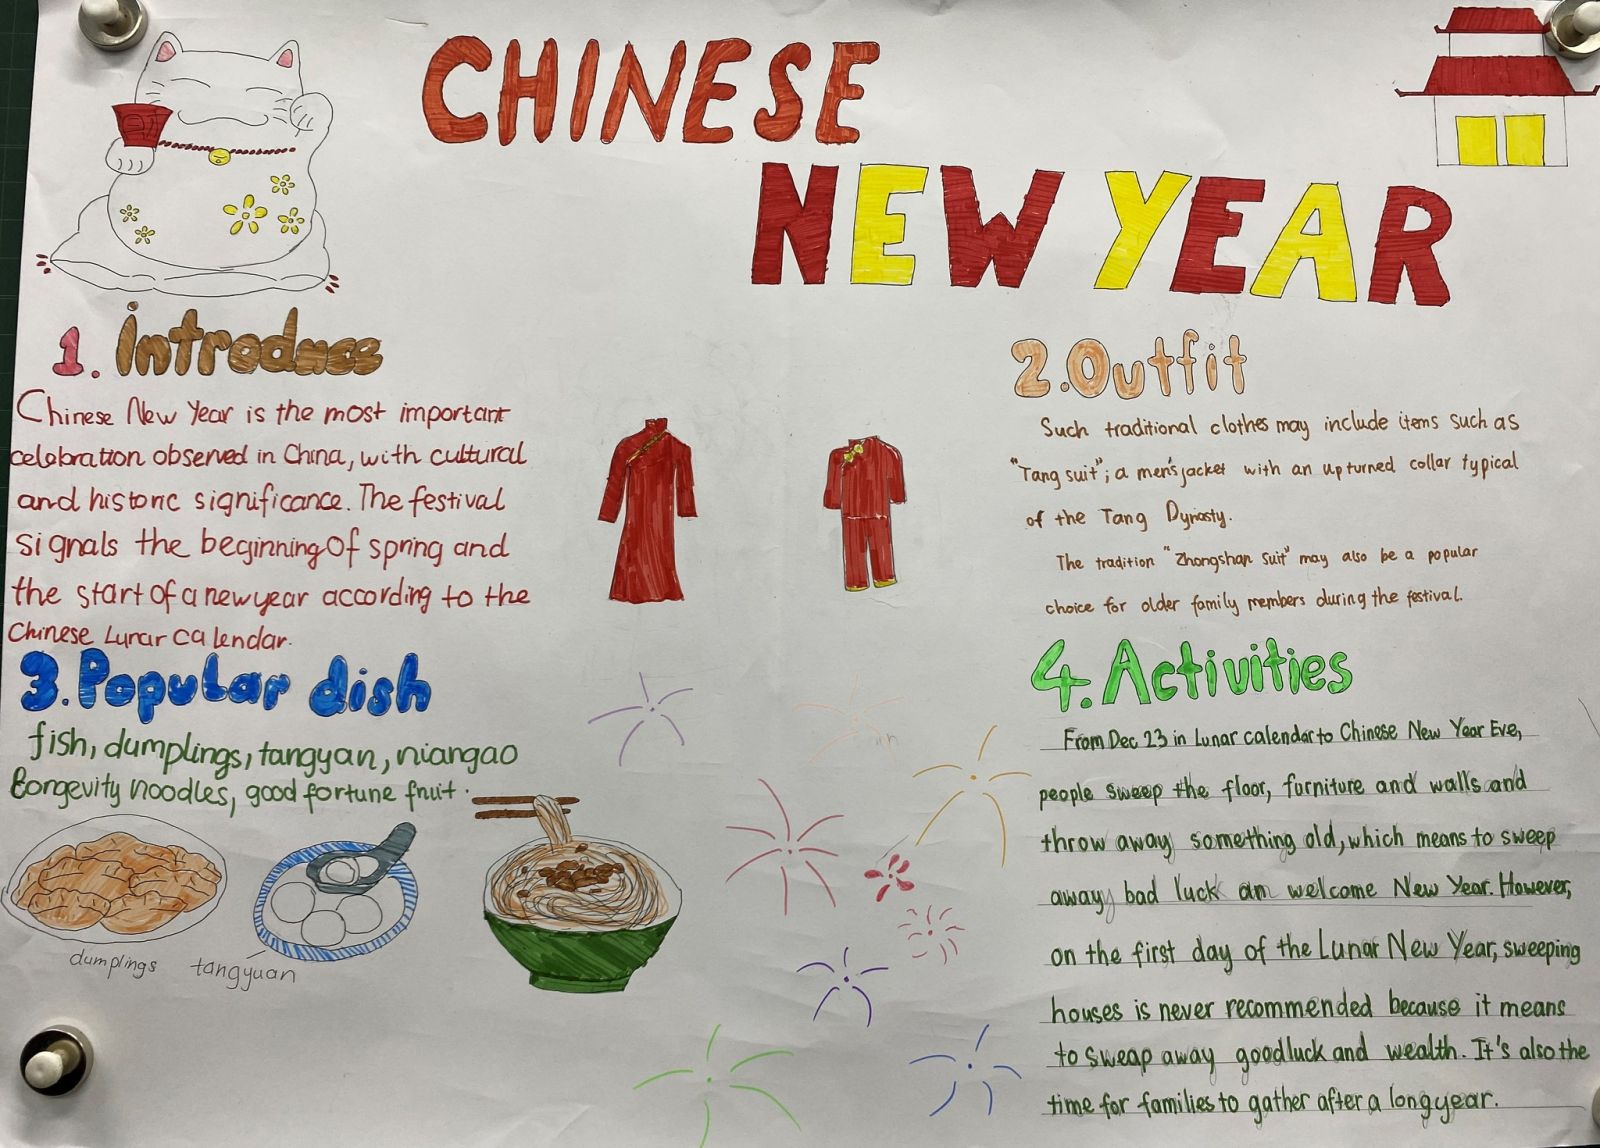 CHINESE
NEW YEAR
1. introduce
Chinese New Year is the most important
celebration observed in China, with cultural
and historic significance. The festival
signals the beginning of spring and
the start of a new year according to the
Chinese Lunar calendar.
2. Outfit
Such traditional clothes may include items such as
"Tang suit"; a men's jacket with an upturned collar typical
of the Tang Dynasty.
The tradition "Zhongshan suit" may also be a popular
choice for older family members during the festival.
3. Popular dish
fish, dumplings, tangyan, niangao
Longevity noodles, good fortune fruit.
dumplings
tangyúan
4. Activities
From Dec 23 in Lunar calendar to Chinese New Year Eve,
people sweep the floor, furniture and walls and
throw away something old, which means to sweep
away bad luck an welcome New Year. However,
on the first day of the Lunar New Year, sweeping
houses is never recommended because it means
to sweap away goodluck and wealth. It's also the
time for families to gather after a long year.